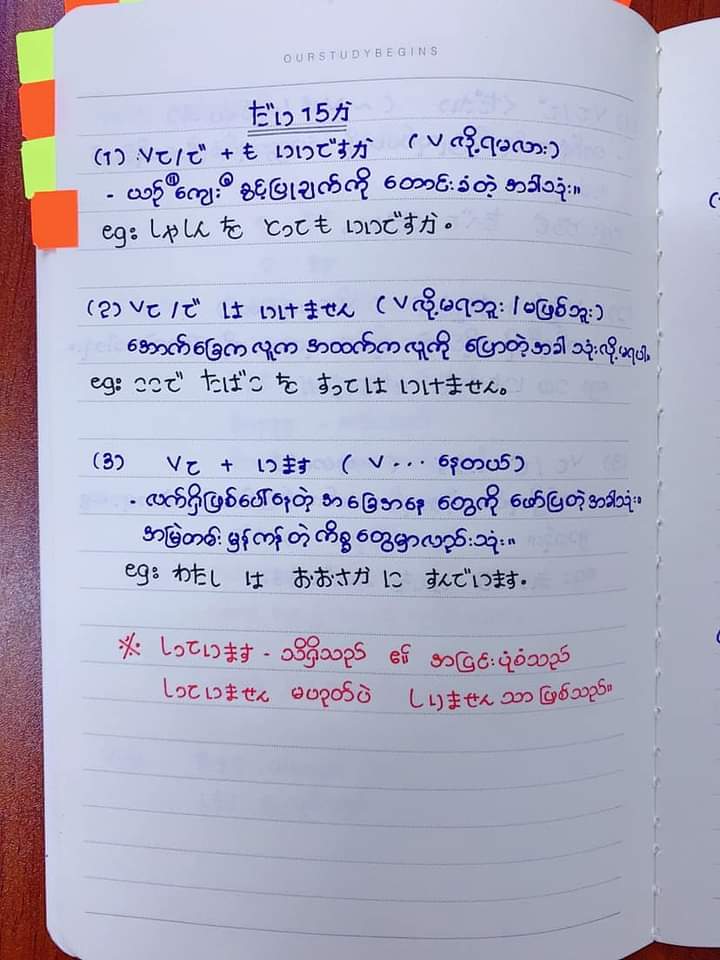 OURSTUDYBEGINS
だい 15 か
(1) Vて/で + も いいですか ( V လို့ရမလား )
- ယဉ်ကျေးစွာ ခွင့်ပြုချက်ကို တောင်းခံတဲ့ အခါသုံး။
eg: しゃしん を とっても いいですか。
(၃) Vて/で は いけません ( V လို့မရဘူး / မဖြစ်ဘူး )
အောက်ခြေကလူက အထက်ကလူကို ပြောတဲ့အခါ သုံးလို့မရပါ။
eg: ここで たばこ を すっては いけません。
(3) Vて + います ( V ... နေတယ် )
- လက်ရှိဖြစ်ပေါ်နေတဲ့ အခြေအနေ တွေကို ဖော်ပြတဲ့အခါသုံး။
အမြဲတမ်း မှန်ကန်တဲ့ ကိစ္စတွေမှာလည်းသုံး။
eg: わたし は おおさか に すんでいます。
※ しっています - သိရှိသည် ၏ အငြင်းပုံစံသည်
しっていません မဟုတ်ပဲ しりません သာ ဖြစ်သည်။